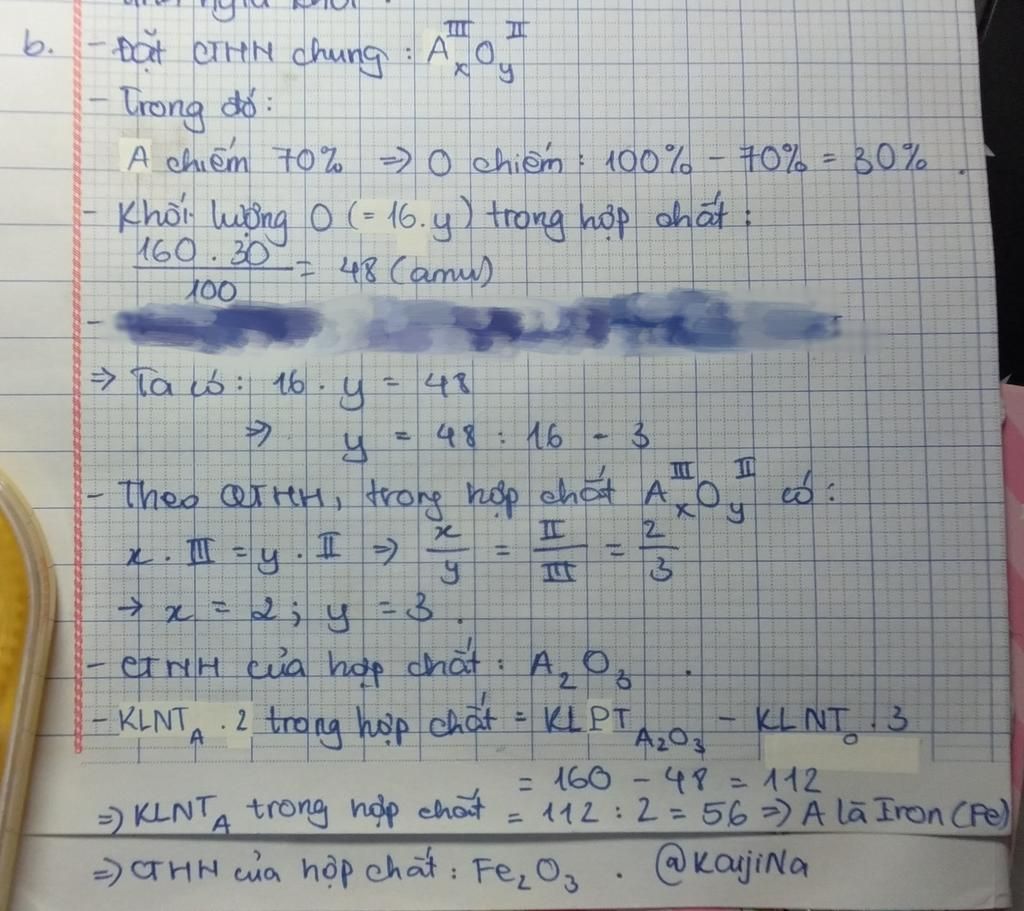 b. - Đặt CTHH chung : A^III_x O^II_y
- Trong đó:
A chiếm 70% => O chiếm : 100% - 70% = 30% .
- Khối lượng O (= 16.y) trong hợp chất :
160 . 30 / 100 = 48 (amu)
-
=> Ta có : 16 . y = 48
=> y = 48 : 16 - 3
- Theo QTHH, trong hợp chất A^III_x O^II_y có :
x . III = y . II => x/y = II/III = 2/3
→ x = 2 ; y = 3 .
- CTHH của hợp chất : A₂O₃ .
- KLNT_A . 2 trong hợp chất = KLPT_A₂O₃ - KLNT_O . 3
= 160 - 48 = 112
=> KLNT_A trong hợp chất = 112 : 2 = 56 => A là Iron (Fe)
=> CTHH của hợp chất : Fe₂O₃ . @KaijiNa